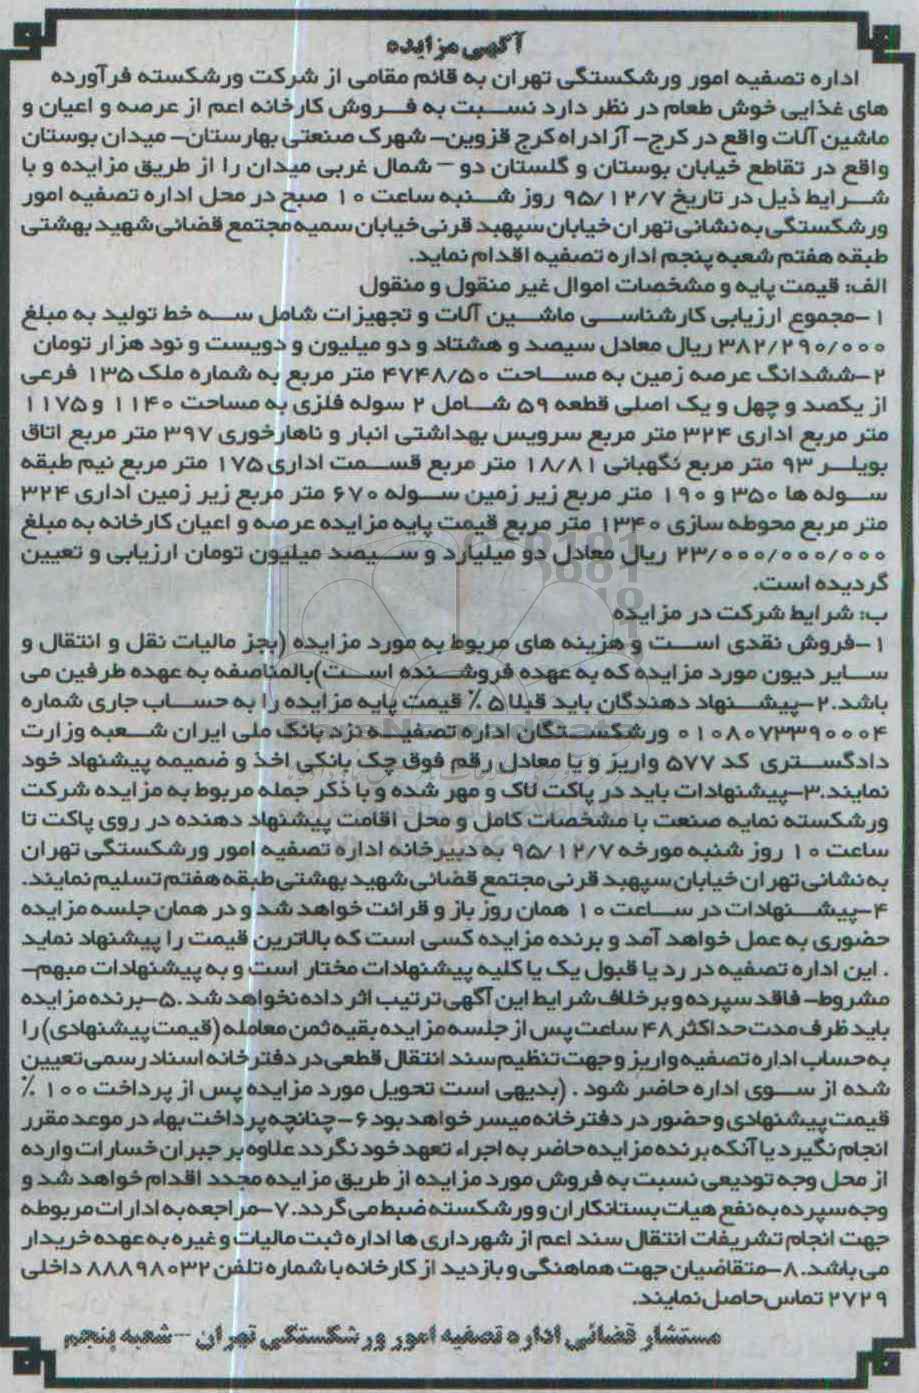 آگهی مزایده
اداره تصفیه امور ورشکستگی تهران به قائم مقامی از شرکت ورشکسته فرآورده
های غذایی خوش طعام در نظر دارد نسبت به فروش کارخانه اعم از عرصه و اعیان و
ماشین آلات واقع در کرج- آزادراه کرج قزوین- شهرک صنعتی بهارستان- میدان بوستان
واقع در تقاطع خیابان بوستان و گلستان دو – شمال غربی میدان را از طریق مزایده و با
شرایط ذیل در تاریخ ۹۵/۱۲/۷ روز شنبه ساعت ۱۰ صبح در محل اداره تصفیه امور
ورشکستگی به نشانی تهران خیابان سپهبد قرنی خیابان سمیه مجتمع قضائی شهید بهشتی
طبقه هفتم شعبه پنجم اداره تصفیه اقدام نماید.
الف: قیمت پایه و مشخصات اموال غیر منقول و منقول
۱-مجموع ارزیابی کارشناسی ماشین آلات و تجهیزات شامل سه خط تولید به مبلغ
۳۸۲/۲۹۰/۰۰۰ ریال معادل سیصد و هشتاد و دو میلیون و دویست و نود هزار تومان
۲-ششدانگ عرصه زمین به مساحت ۴۷۴۸/۵۰ متر مربع به شماره ملک ۱۳۵ فرعی
از یکصد و چهل و یک اصلی قطعه ۵۹ شامل ۲ سوله فلزی به مساحت ۱۱۴۰ و ۱۱۷۵
متر مربع اداری ۳۲۴ متر مربع سرویس بهداشتی انبار و ناهارخوری ۳۹۷ متر مربع اتاق
بویلر ۹۳ متر مربع نگهبانی ۱۸/۸۱ متر مربع قسمت اداری ۱۷۵ متر مربع نیم طبقه
سوله ها ۳۵۰ و ۱۹۰ متر مربع زیر زمین سوله ۶۷۰ متر مربع زیر زمین اداری ۳۲۴
متر مربع محوطه سازی ۱۳۴۰ متر مربع قیمت پایه مزایده عرصه و اعیان کارخانه به مبلغ
۲۳/۰۰۰/۰۰۰/۰۰۰ ریال معادل دو میلیارد و سیصد میلیون تومان ارزیابی و تعیین
گردیده است.
ب: شرایط شرکت در مزایده
۱-فروش نقدی است و هزینه های مربوط به مورد مزایده (بجز مالیات نقل و انتقال و
سایر دیون مورد مزایده که به عهده فروشنده است)بالمناصفه به عهده طرفین می
باشد.۲-پیشنهاد دهندگان باید قبلا ۵ ٪ قیمت پایه مزایده را به حساب جاری شماره
۰۱۰۸۰۷۳۳۹۰۰۰۴ ورشکستگان اداره تصفیه نزد بانک ملی ایران شعبه وزارت
دادگستری کد ۵۷۷ واریز و یا معادل رقم فوق چک بانکی اخذ و ضمیمه پیشنهاد خود
نمایند.۳-پیشنهادات باید در پاکت لاک و مهر شده و با ذکر جمله مربوط به مزایده شرکت
ورشکسته نمایه صنعت با مشخصات کامل و محل اقامت پیشنهاد دهنده در روی پاکت تا
ساعت ۱۰ روز شنبه مورخه ۹۵/۱۲/۷ به دبیرخانه اداره تصفیه امور ورشکستگی تهران
به نشانی تهران خیابان سپهبد قرنی مجتمع قضائی شهید بهشتی طبقه هفتم تسلیم نمایند.
۴-پیشنهادات در ساعت ۱۰ همان روز باز و قرائت خواهد شد و در همان جلسه مزایده
حضوری به عمل خواهد آمد و برنده مزایده کسی است که بالاترین قیمت را پیشنهاد نماید
. این اداره تصفیه در رد یا قبول یک یا کلیه پیشنهادات مختار است و به پیشنهادات مبهم-
مشروط- فاقد سپرده و برخلاف شرایط این آگهی ترتیب اثر داده نخواهد شد .۵-برنده مزایده
باید ظرف مدت حداکثر ۴۸ ساعت پس از جلسه مزایده بقیه ثمن معامله (قیمت پیشنهادی) را
به حساب اداره تصفیه واریز و جهت تنظیم سند انتقال قطعی در دفترخانه اسناد رسمی تعیین
شده از سوی اداره حاضر شود . (بدیهی است تحویل مورد مزایده پس از پرداخت ۱۰۰ ٪
قیمت پیشنهادی و حضور در دفترخانه میسر خواهد بود ۶-چنانچه پرداخت بهاء در موعد مقرر
انجام نگیرد یا آنکه برنده مزایده حاضر به اجراء تعهد خود نگردد علاوه بر جبران خسارات وارده
از محل وجه تودیعی نسبت به فروش مورد مزایده از طریق مزایده مجدد اقدام خواهد شد و
وجه سپرده به نفع هیات بستانکاران و ورشکسته ضبط می گردد.۷-مراجعه به ادارات مربوطه
جهت انجام تشریفات انتقال سند اعم از شهرداری ها اداره ثبت مالیات و غیره به عهده خریدار
می باشد.۸-متقاضیان جهت هماهنگی و بازدید از کارخانه با شماره تلفن ۸۸۸۹۸۰۳۲ داخلی
۲۷۲۹ تماس حاصل نمایند.
مستشار قضائی اداره تصفیه امور ورشکستگی تهران -شعبه پنجم